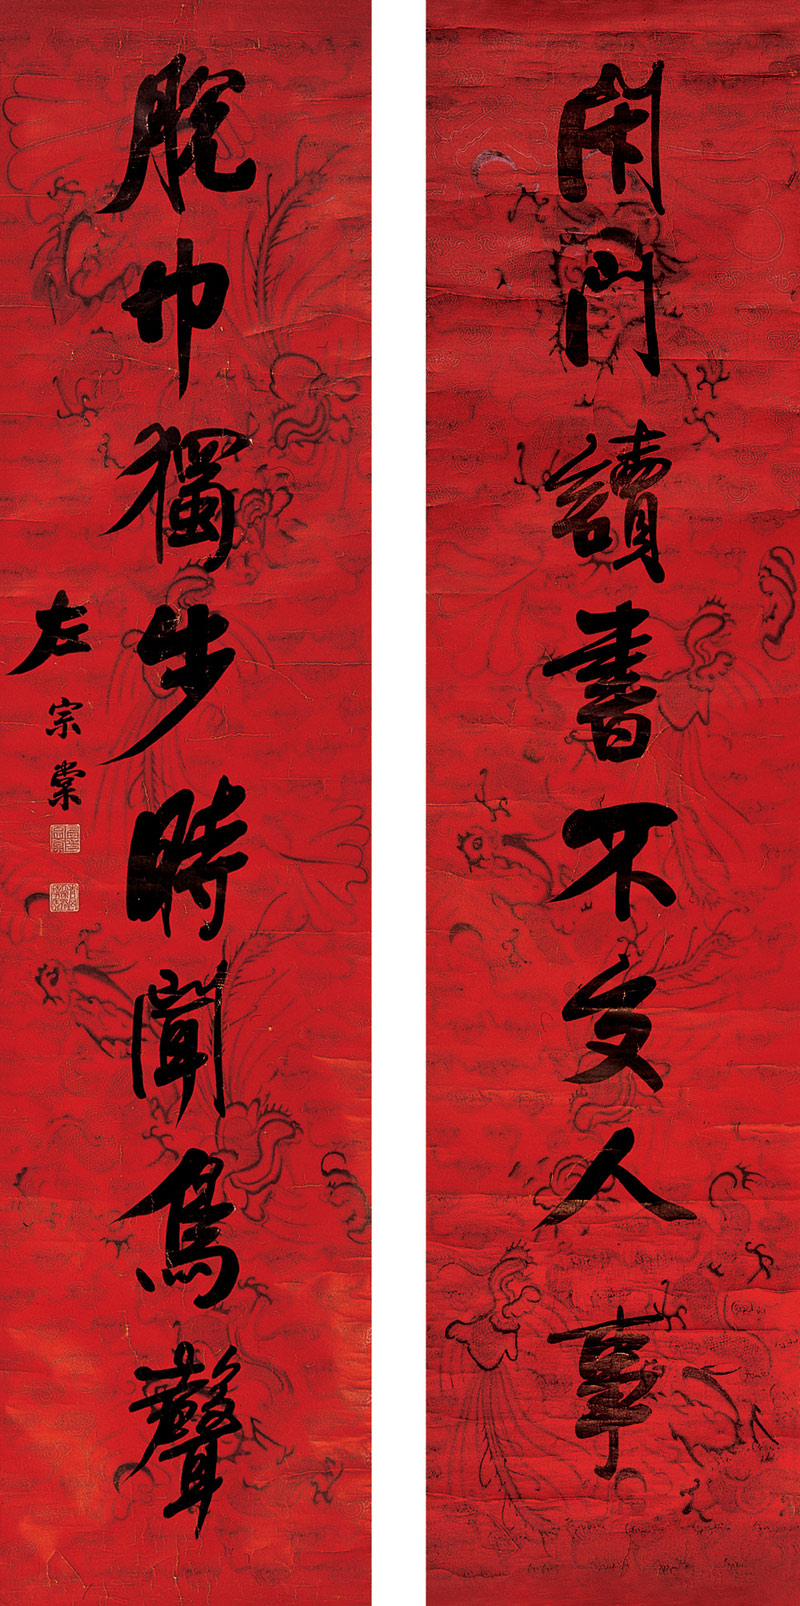 閉門讀書不交人事
脫巾獨步時聞鳥聲
左宗棠